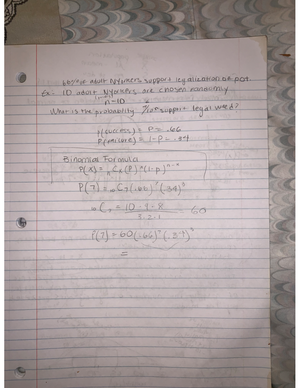 of adult NYorkers support legalization of pot
Ex- 10 adult NYorkers are chosen randomly
n=10
What is the probability 7/10 support legal weed?
P(success) = P = .66
P(failure) = 1-P = .34
Binomial Formula
P(x) = nCx (P)^x (1-p)^n-x
P(7) = 10C7 (.66)^7 (.34)^3
= C7 = 10·9·8 / 3·2·1 60
P(7) = 60(.66)^7 (.34)^3
=